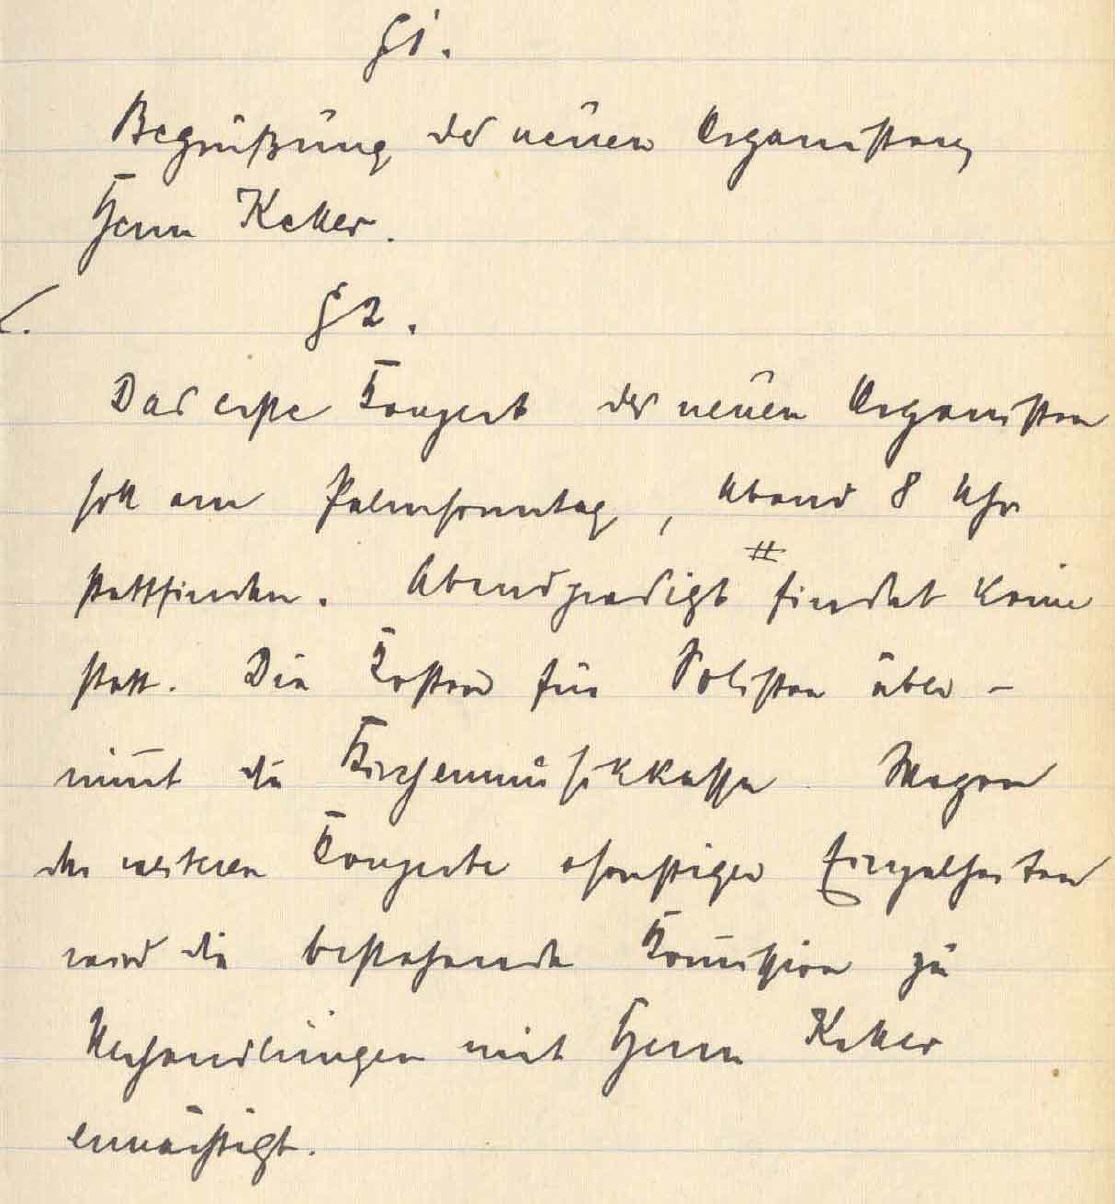 § 1.
Begrüßung des neuen Organisten,
Herrn Keller.
§ 2.
Das erste Konzert des neuen Organisten
soll am Palmsonntag, Abend 8 Uhr
stattfinden. Abendpredigt # findet keine
statt. Die Kosten für Solisten über-
nim̅t die Kirchenmusikkasse. Wegen
der weiteren Konzerte u. sonstiger Einzelheiten
wird die bestehende Kom̅ission zu
Verhandlungen mit Herrn Keller
ermächtigt.